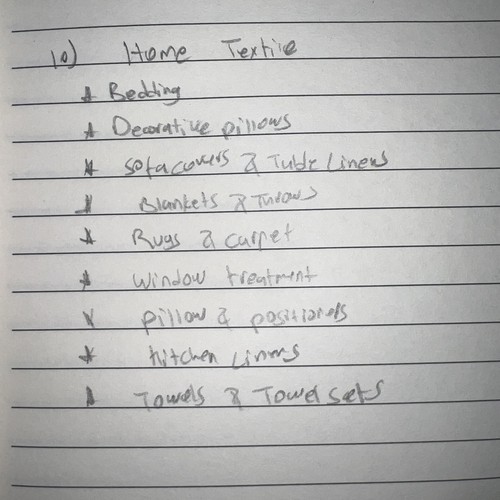 10) Home Textile
* Bedding
* Decorative pillows
* Sofa covers & Table Linens
* Blankets & Throws
* Rugs & carpet
* window treatment
* pillow & positioners
* kitchen Linens
* Towels & Towel sets